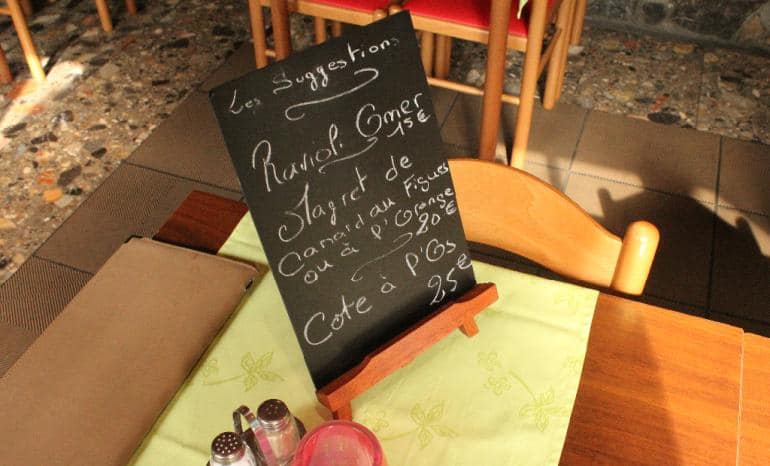 Les Suggestions
Ravioli Omer
15€
Magret de
Canard au Figues
ou à l'Orange
20€
Cote à l'Os
25€